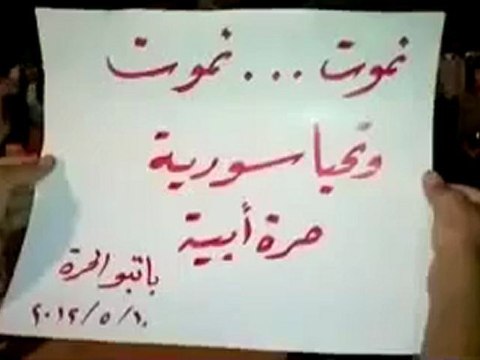 نموت ... نموت
وتحيا سورية
حرة أبية
باتبو الحرة
٢٠١٢/٥/١٠